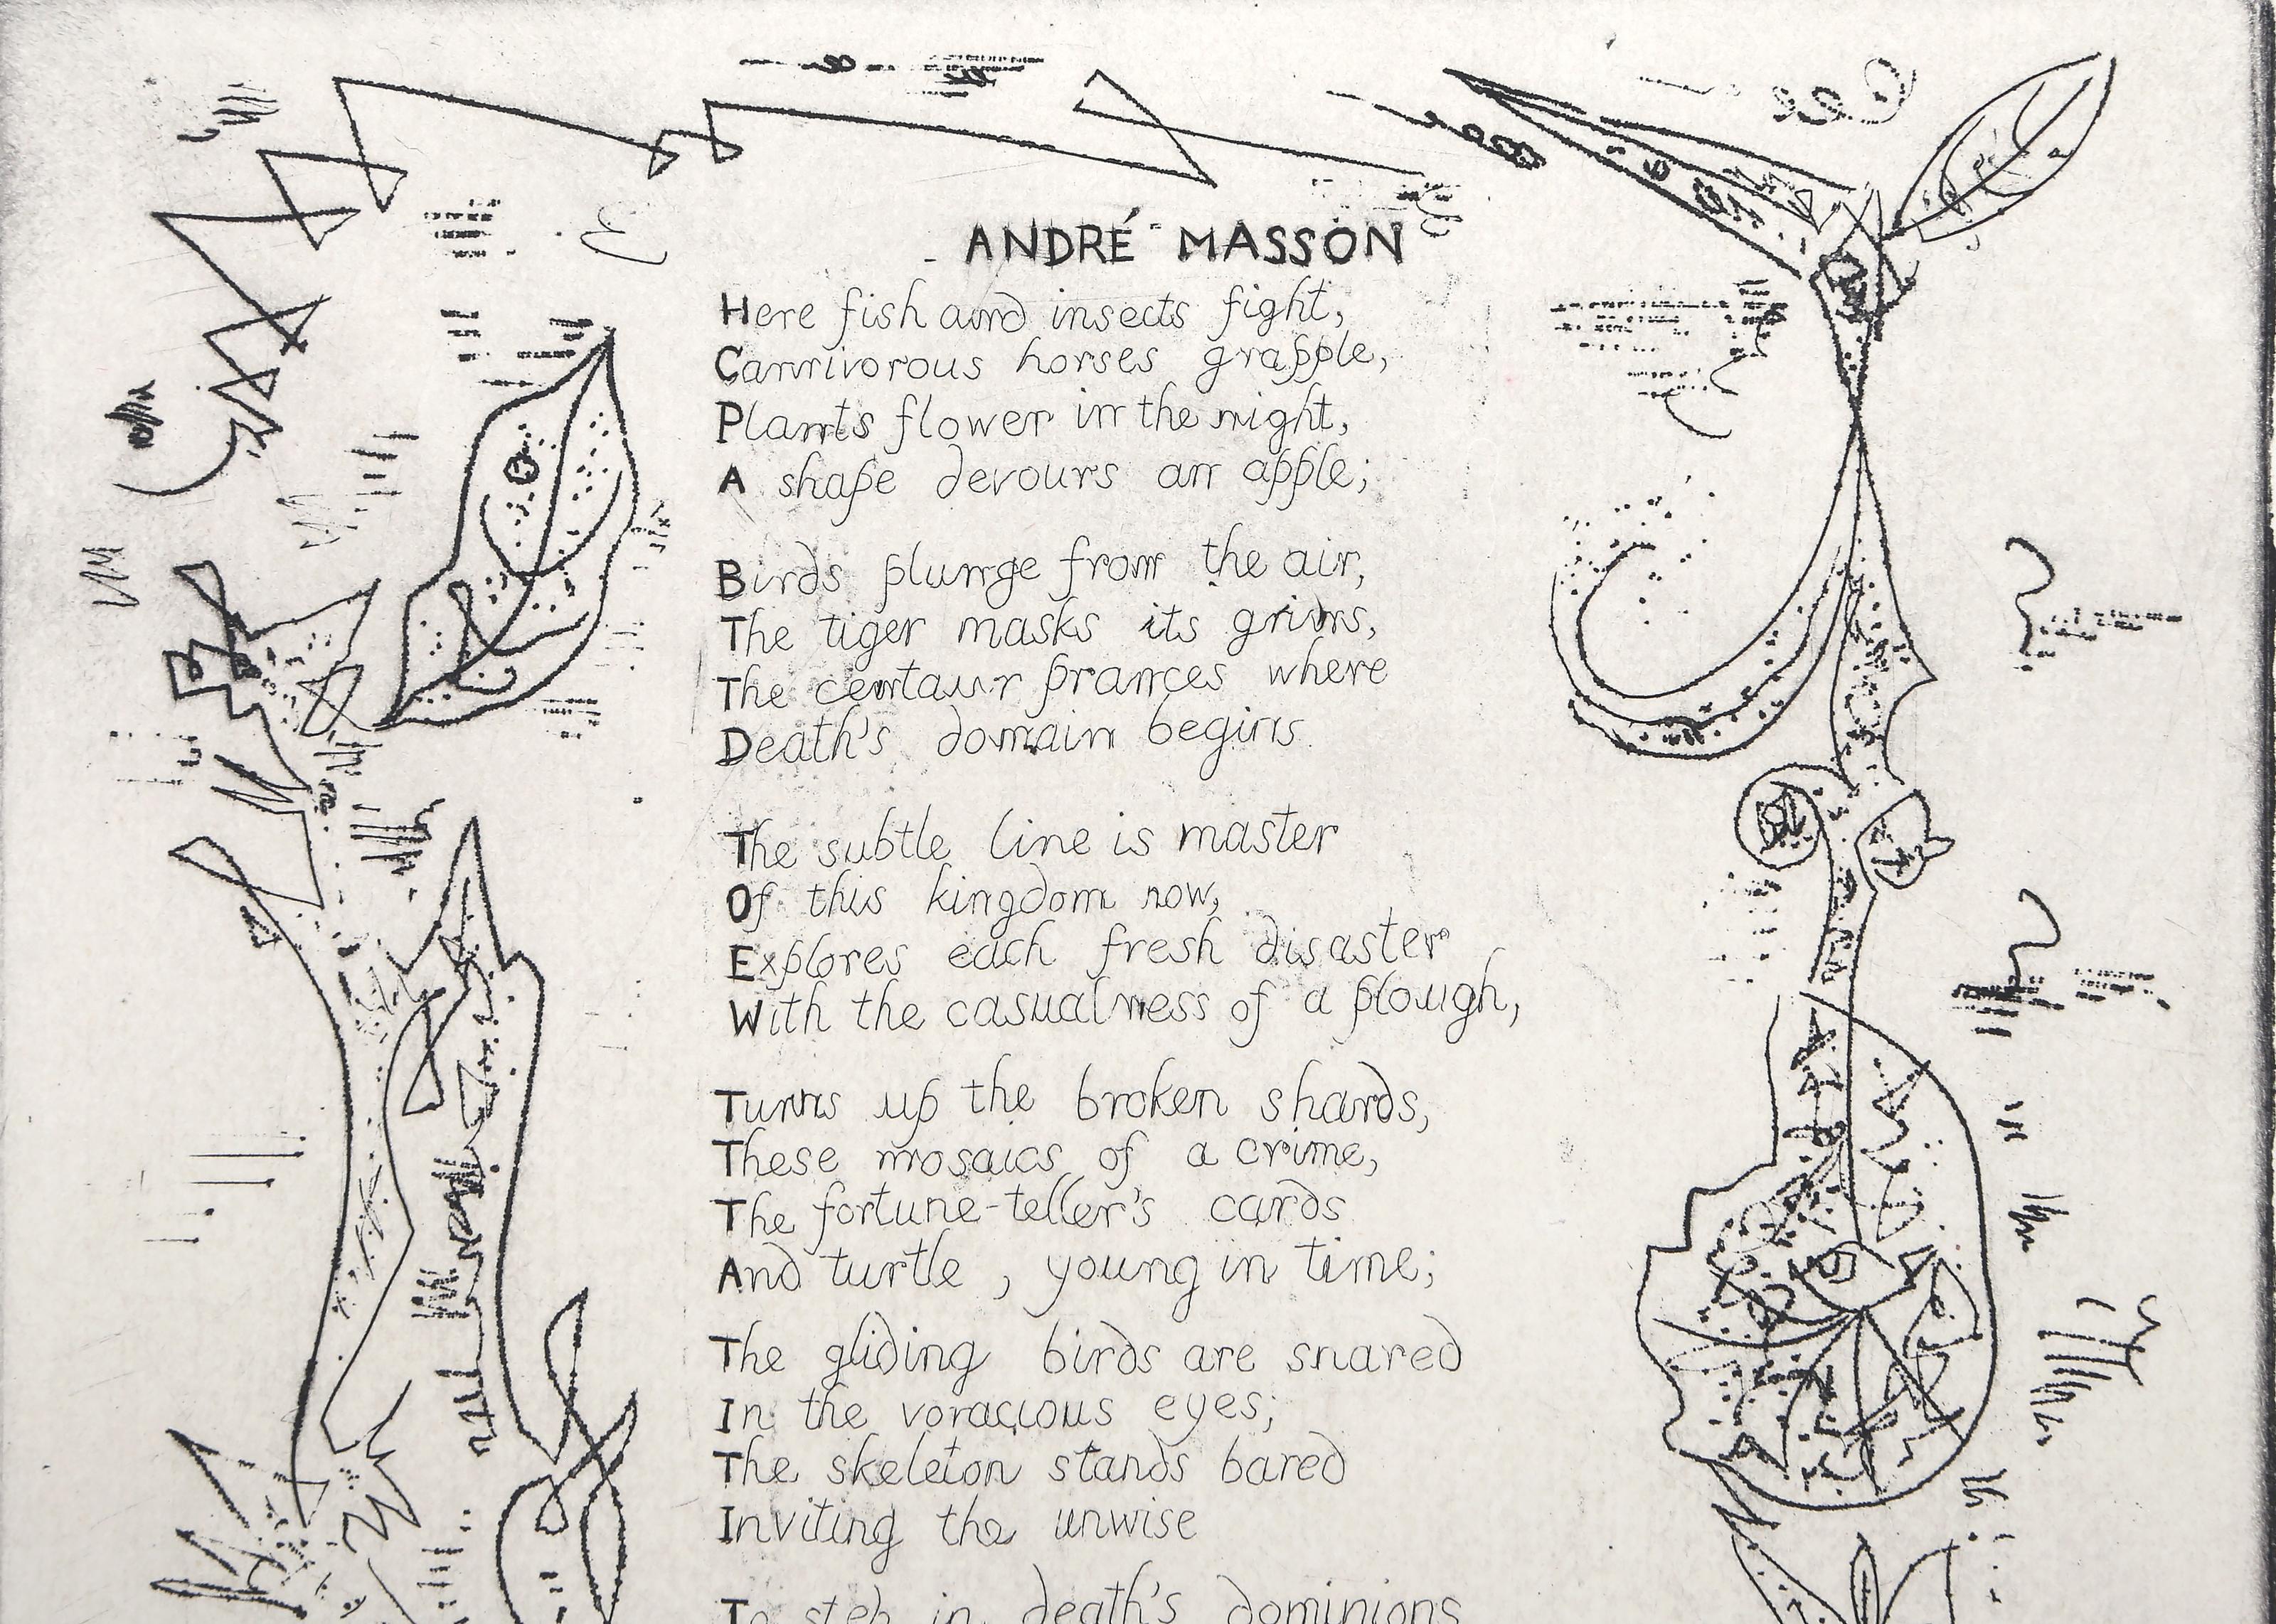 ANDRÉ MASSON
Here fish and insects fight,
Carnivorous horses grapple,
Plants flower in the night,
A shape devours an apple;
Birds plunge from the air,
The tiger masks its grins,
The centaur prances where
Death's domain begins.
The subtle line is master
Of this kingdom now,
Explores each fresh disaster
With the casualness of a plough,
Turns up the broken shards,
These mosaics of a crime,
The fortune-teller's cards
And turtle, young in time;
The gliding birds are snared
In the voracious eyes;
The skeleton stands bared
Inviting the unwise
To step in death's dominions